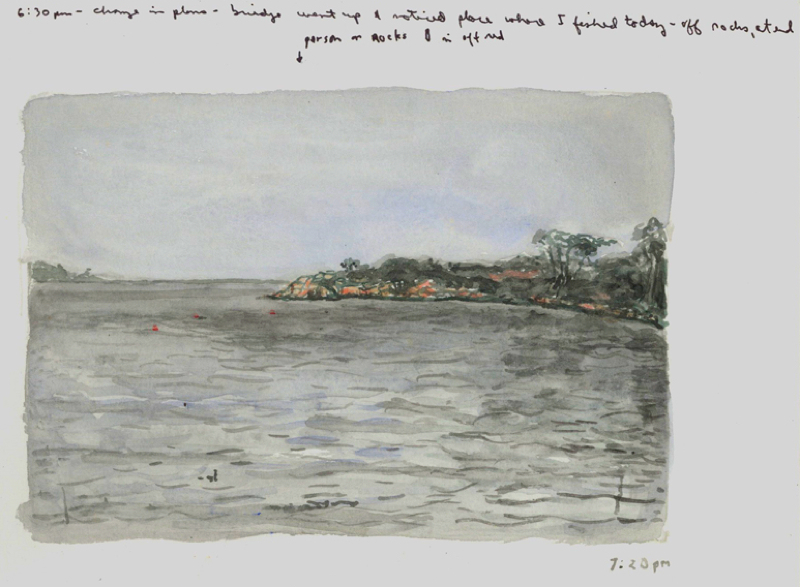 6:30pm - change in plans - bridge went up & noticed place where I fished today - off rocks, at end
person on rocks in off red
7:20pm